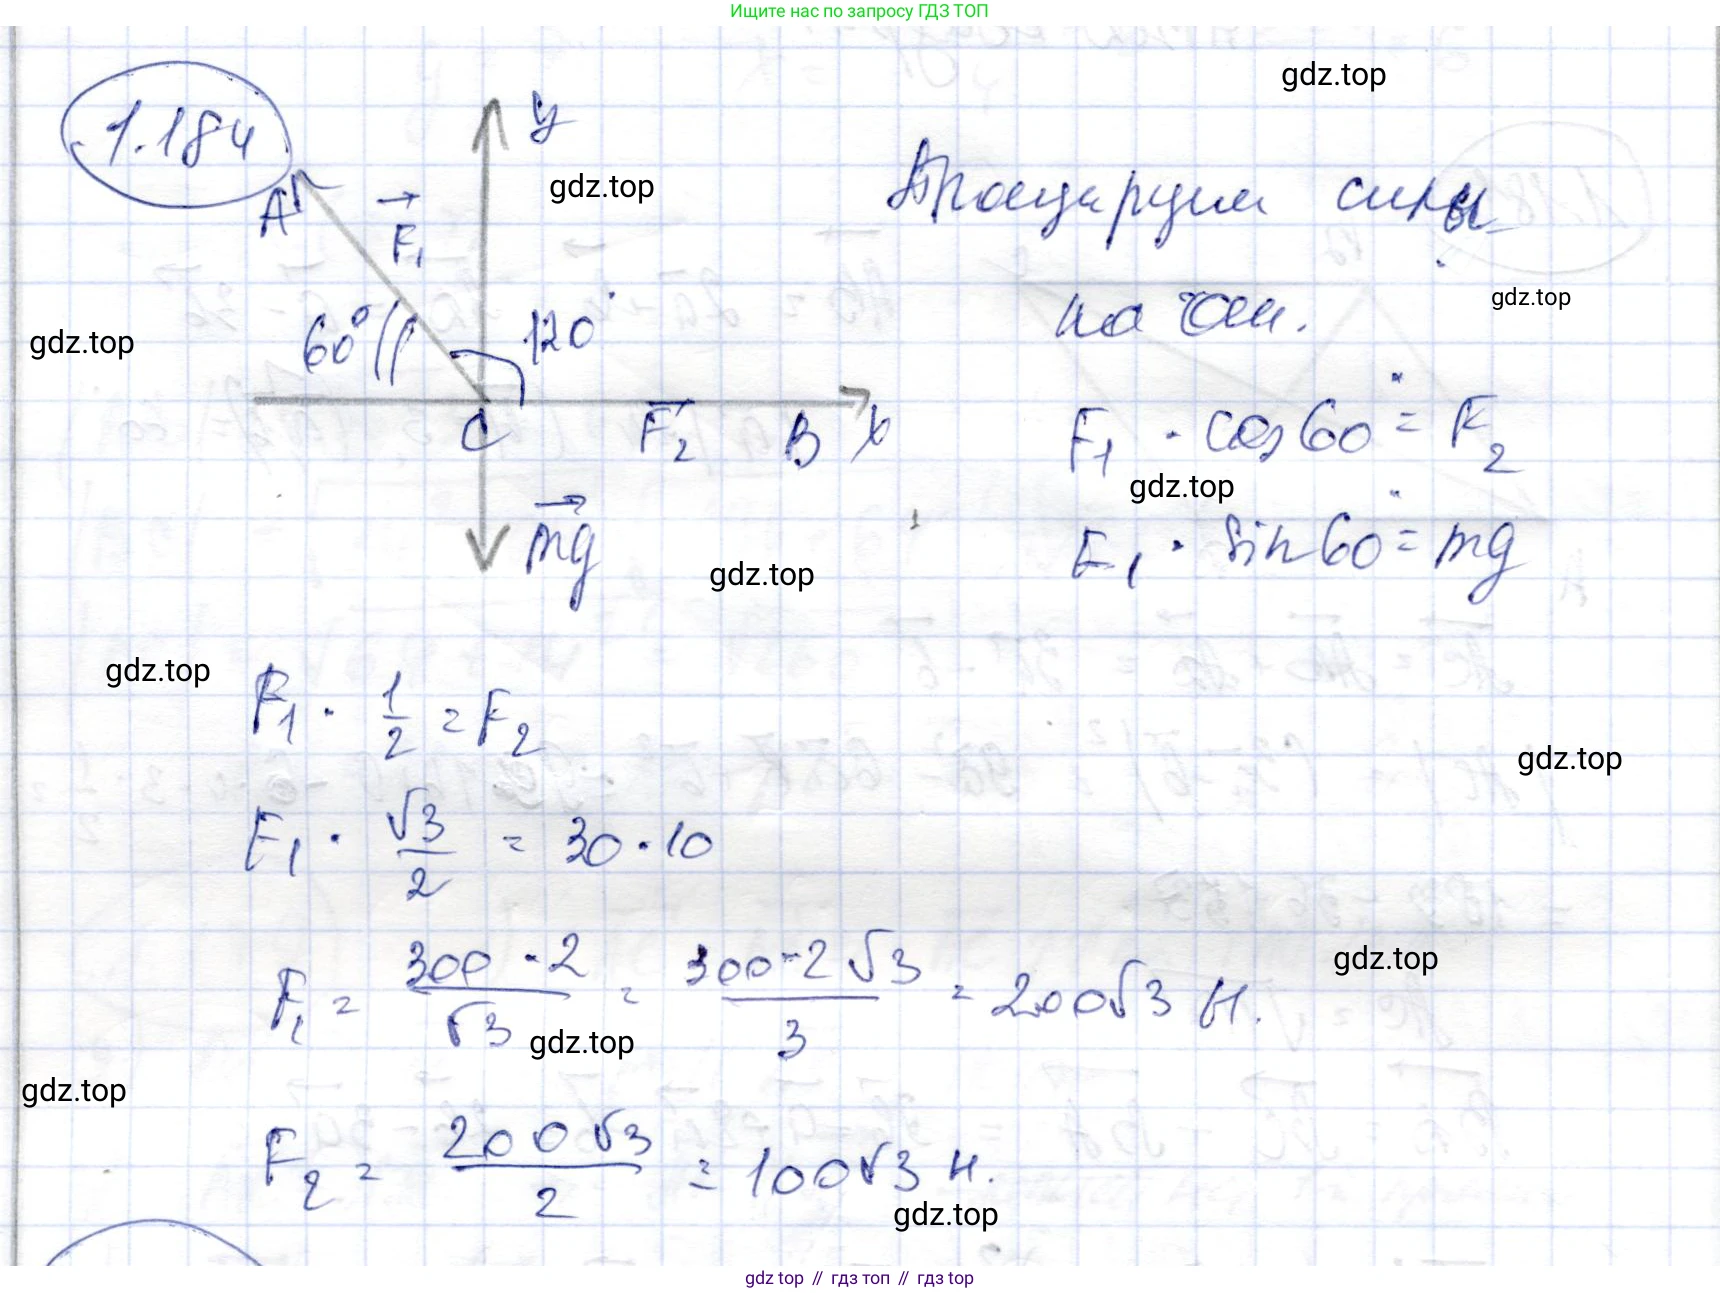 Ищите нас по запросу ГДЗ ТОП
gdz.top
1.184
y
gdz.top
Проецируем силы
A
F₁
gdz.top
на оси.
gdz.top
60°
120°
C
F₂
B
x
F₁ · cos 60° = F₂
gdz.top
mg
F₁ · sin 60° = mg
gdz.top
gdz.top
F₁ · 1/2 = F₂
gdz.top
F₁ · √3/2 = 30 · 10
gdz.top
F₁ = 300 · 2/√3 = 300 · 2√3/3 = 200√3 Н.
gdz.top
gdz.top
F₂ = 200√3/2 = 100√3 Н.
gdz.top
gdz top // гдз топ // гдз top